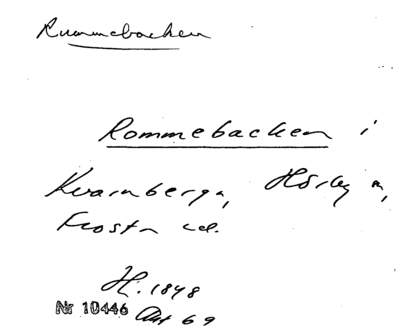 Rummebacken
Rommebacken i
Kvarnberga, Hörby sn,
Frosta hd.
H. 1848
Nr 10446 Akt 69